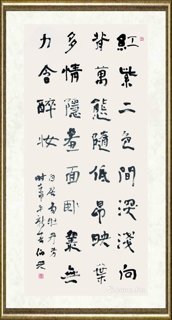 紅紫二色間深淺向
背萬態隨低昂映葉
多情隱羞面卧叢無
力含醉妝
白居易牡丹芳